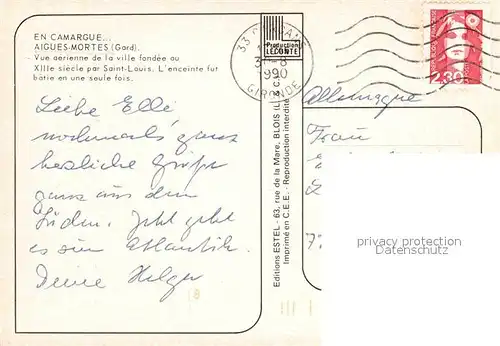 EN CAMARGUE...
AIGUES-MORTES (Gard).
- Vue aérienne de la ville fondée au
XIIIe siècle par Saint-Louis. L'enceinte fut
bâtie en une seule fois.
Liebe Elli
nochmals ganz
herzliche Grüße
ganz aus dem
Süden. Jetzt geht
es zum Atlantik.
Deine Helga
Production
LECONTE
Editions ESTEL - 63, rue de la Mare, BLOIS
Imprimé en C.E.E. - Reproduction interdite
33
-8
1990
GIRONDE
2,30
Allemagne
Frau
privacy protection
AnsichtskartenVersand.com